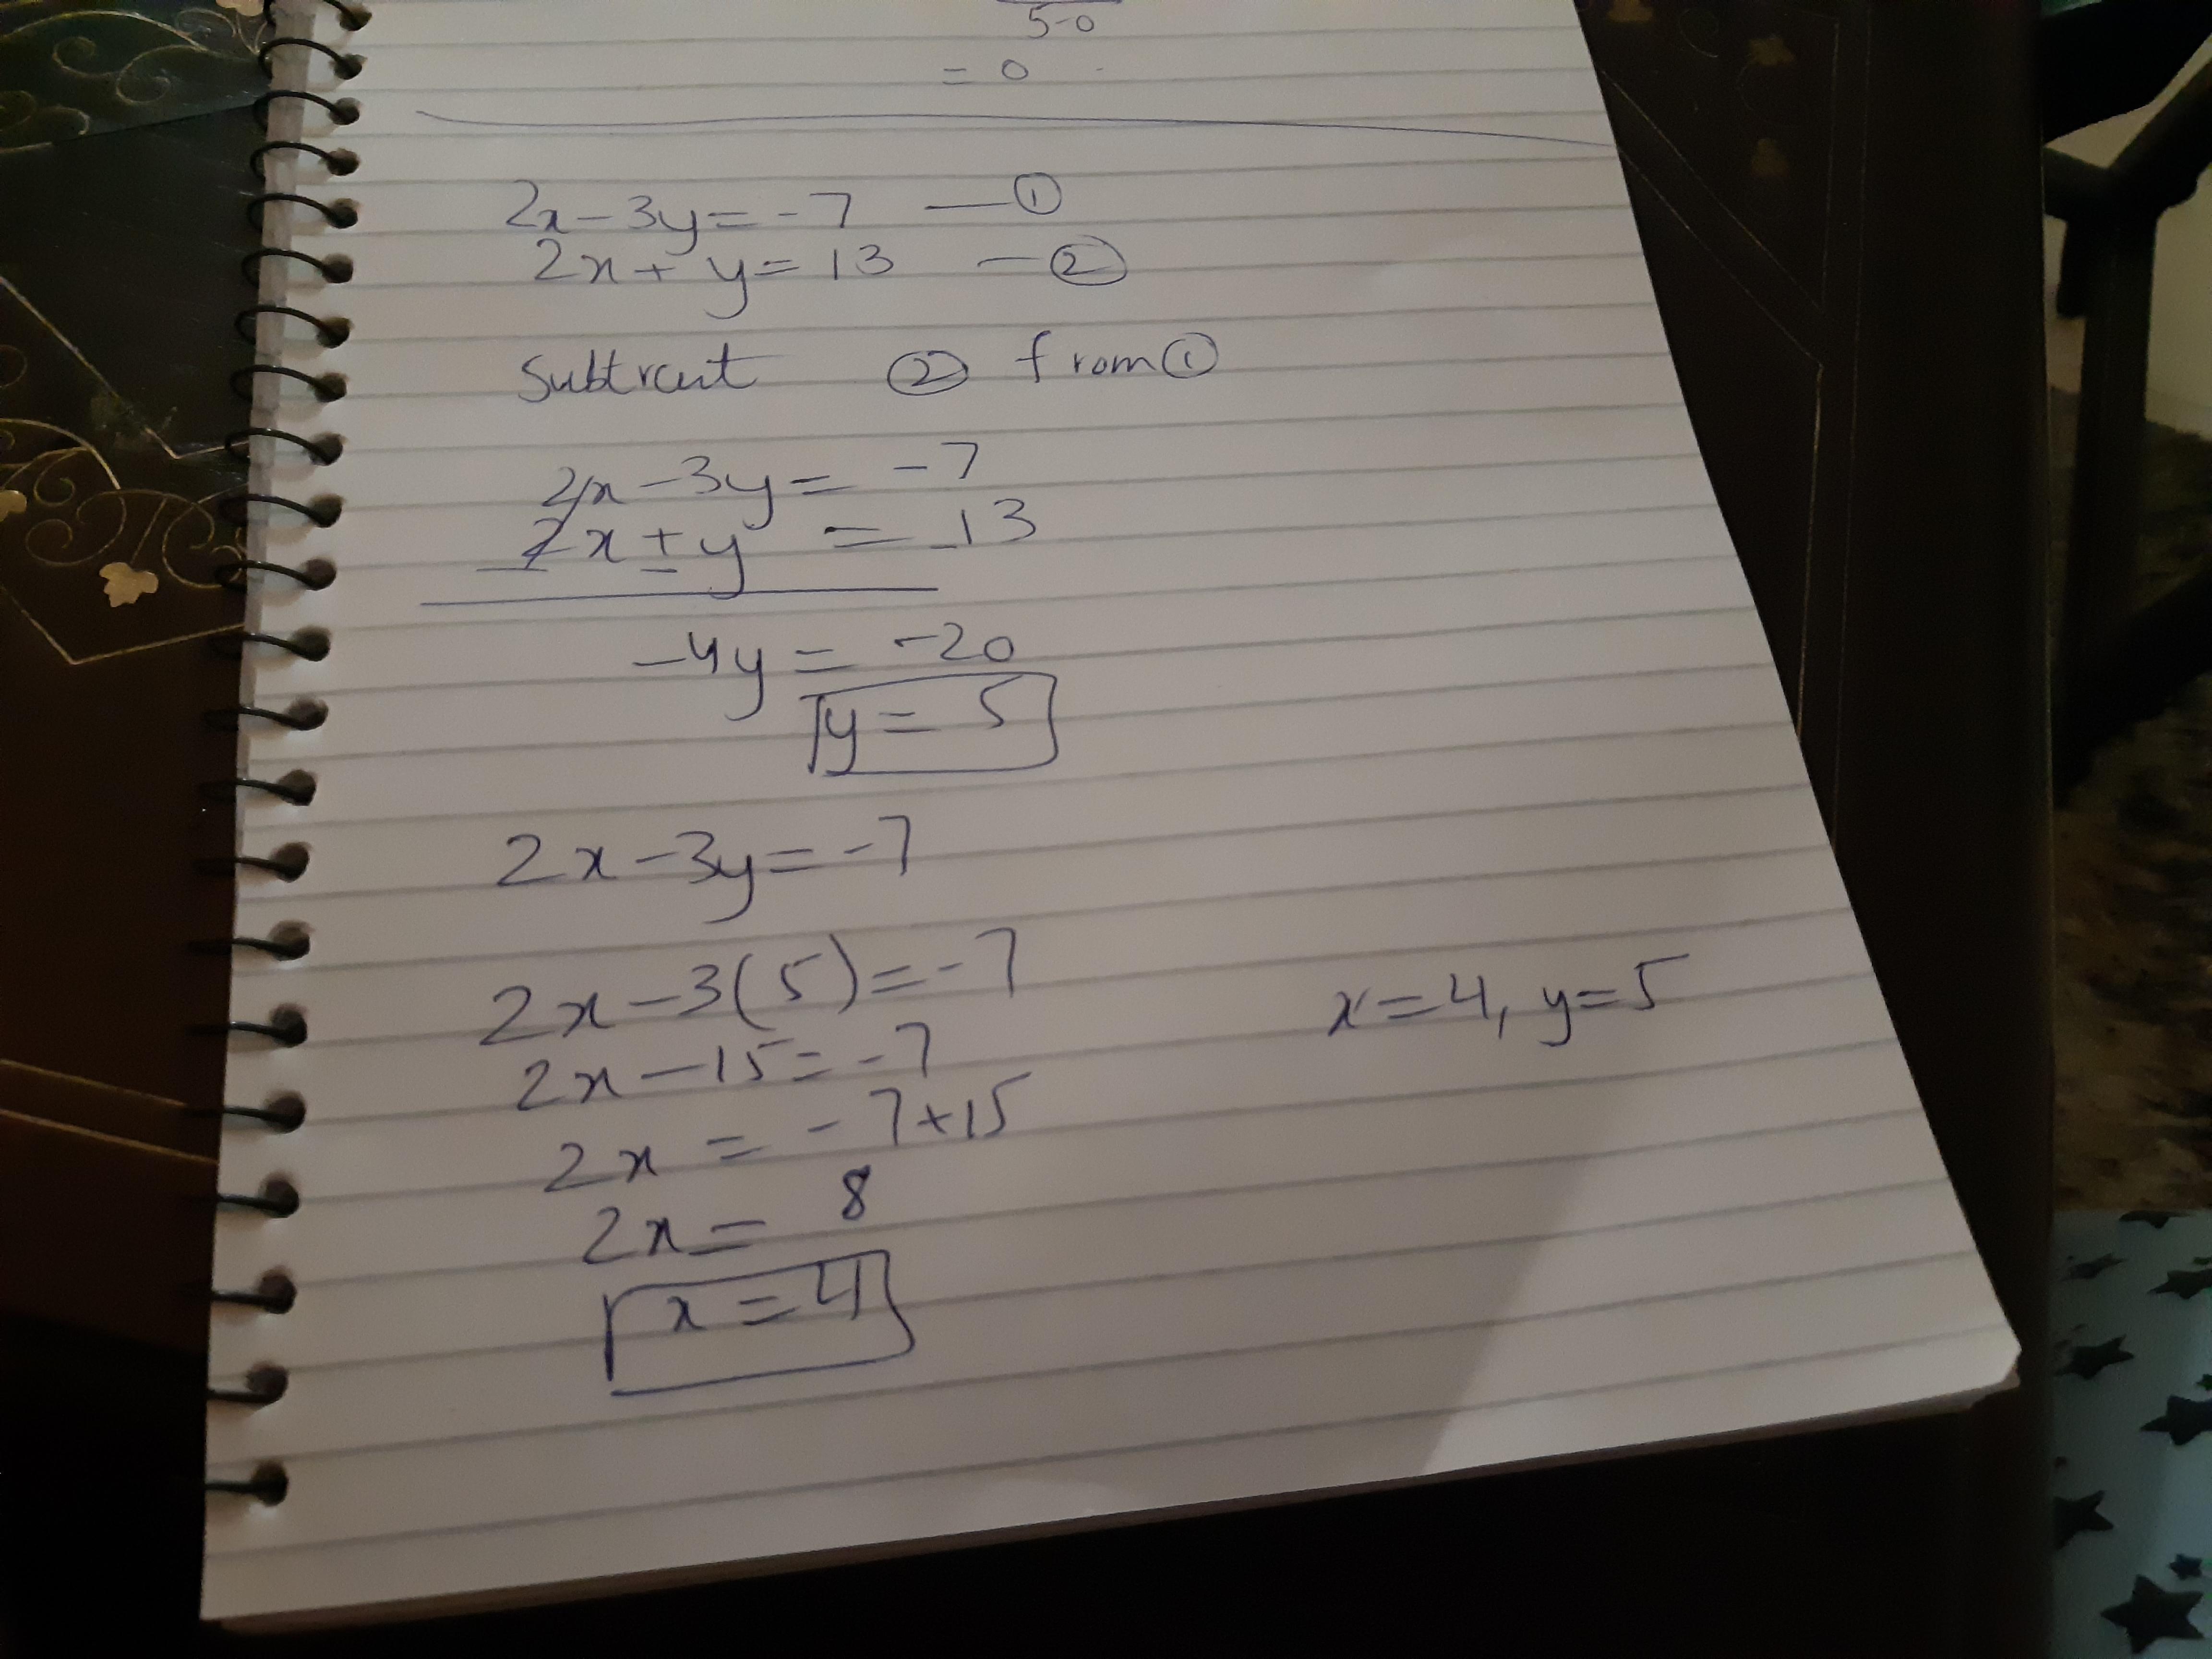 5-0
= 0
2x-3y=-7 —①
2x+y=13 —②
Subtract ② from ①
2x-3y=-7
2x+y = 13
— — -
-4y=-20
y=5
2x-3y=-7
2x-3(5)=-7
x=4, y=5
2x-15=-7
2x = -7+15
2x= 8
x=4